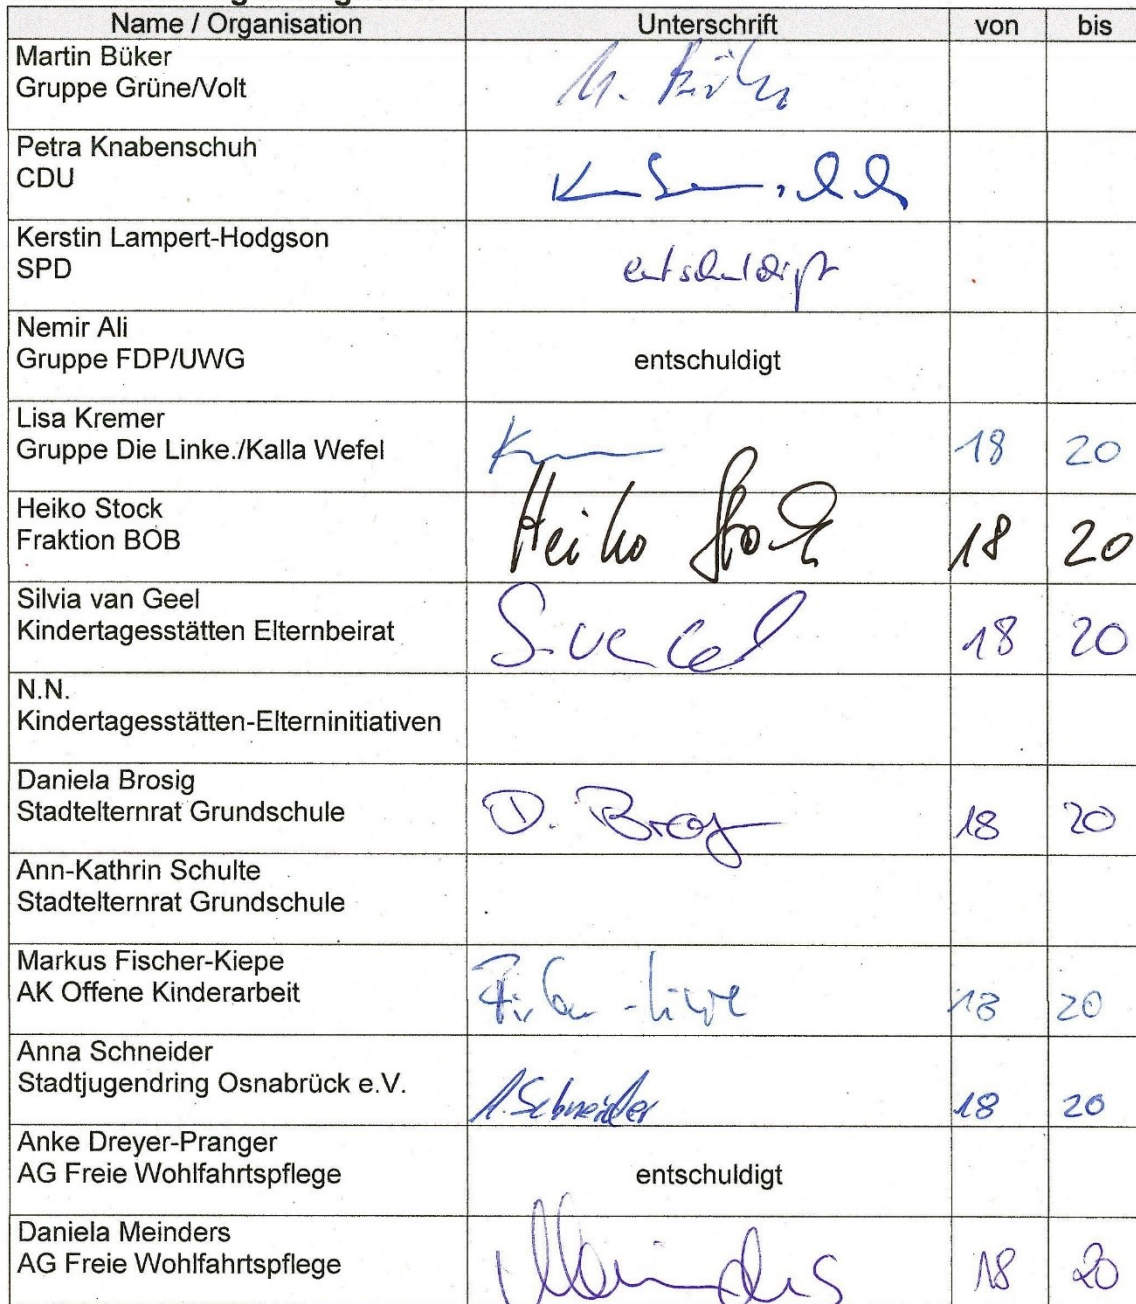 Name / Organisation Unterschrift von bis
Martin Büker
Gruppe Grüne/Volt
Petra Knabenschuh
CDU
Kerstin Lampert-Hodgson
SPD entschuldigt
Nemir Ali
Gruppe FDP/UWG entschuldigt
Lisa Kremer
Gruppe Die Linke./Kalla Wefel 18 20
Heiko Stock
Fraktion BOB Heiko Stock 18 20
Silvia van Geel
Kindertagesstätten Elternbeirat 18 20
N.N.
Kindertagesstätten-Elterninitiativen
Daniela Brosig
Stadtelternrat Grundschule D. Brosig 18 20
Ann-Kathrin Schulte
Stadtelternrat Grundschule
Markus Fischer-Kiepe
AK Offene Kinderarbeit 18 20
Anna Schneider
Stadtjugendring Osnabrück e.V. A. Schneider 18 20
Anke Dreyer-Pranger
AG Freie Wohlfahrtspflege entschuldigt
Daniela Meinders
AG Freie Wohlfahrtspflege Meinders 18 20